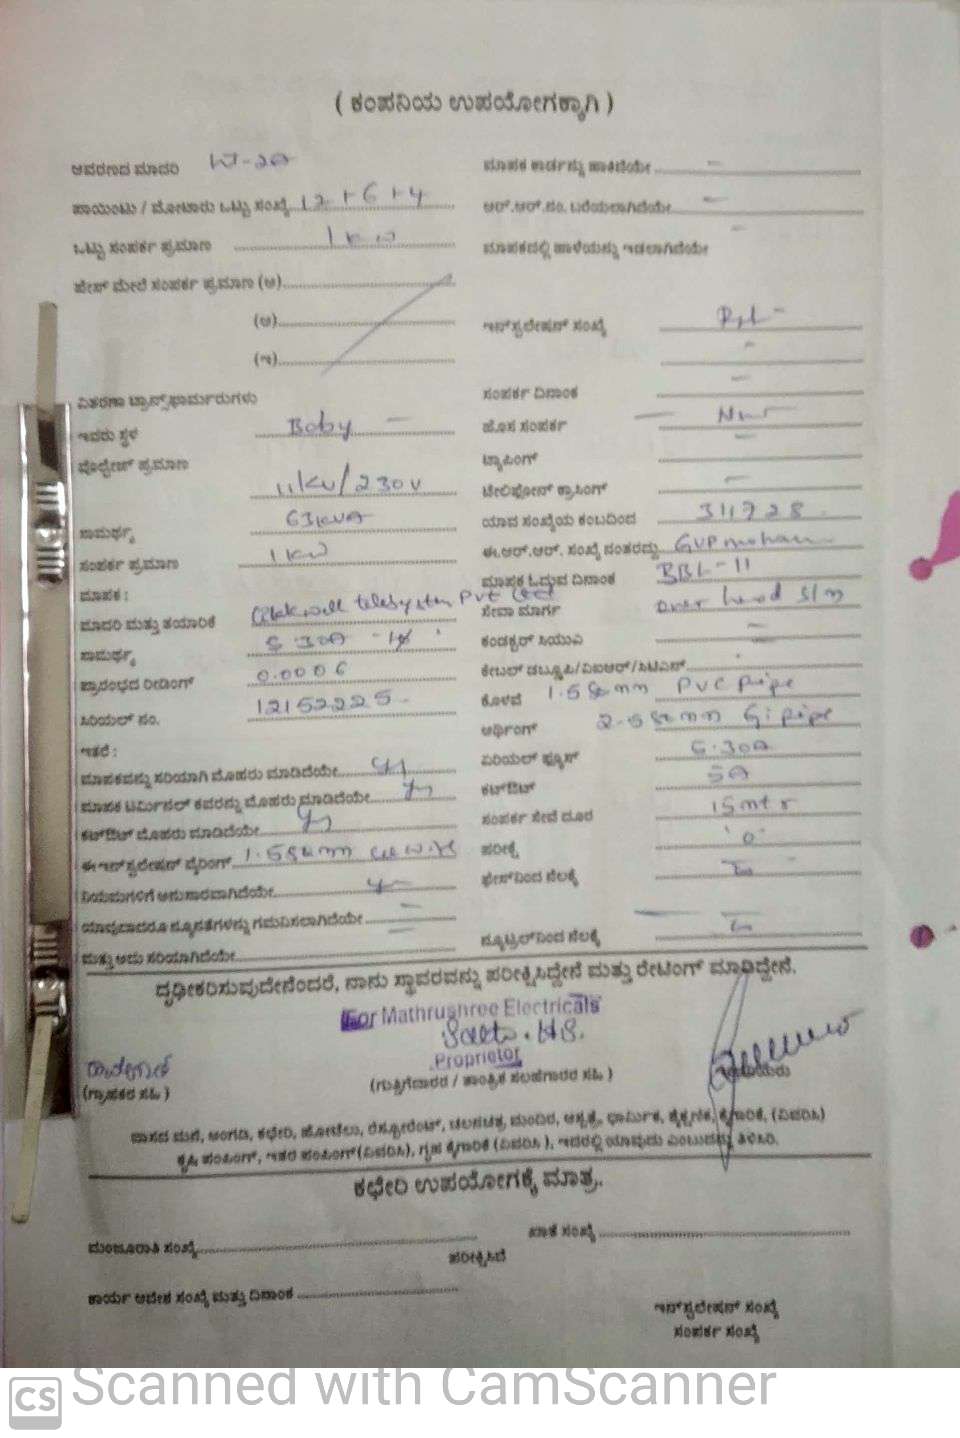 ( ಕಂಪನಿಯ ಉಪಯೋಗಕ್ಕಾಗಿ )
ಆವರಣದ ಮಾದರಿ
ಪಾಯಿಂಟು / ಮೋಟಾರು ಒಟ್ಟು ಸಂಖ್ಯೆ 12+6+4
ಒಟ್ಟು ಸಂಪರ್ಕ ಪ್ರಮಾಣ 1 kw
ಫೇಸ್ ಮೇಲೆ ಸಂಪರ್ಕ ಪ್ರಮಾಣ (ಅ)
(ಆ)
(ಇ)
ವಿತರಣಾ ಟ್ರಾನ್ಸ್‌ಫಾರ್ಮರುಗಳು
ಇವರು ಸ್ಥಳ Boby
ವೋಲ್ಟೇಜ್ ಪ್ರಮಾಣ
11kv/230v
ಸಾಮರ್ಥ್ಯ 63kVA
ಸಂಪರ್ಕ ಪ್ರಮಾಣ 1 kw
ಮಾಪಕ :
ಮಾದರಿ ಮತ್ತು ತಯಾರಿಕೆ telesystem Pvt Ltd
ಸಾಮರ್ಥ್ಯ 5-30A
ಪ್ರಾರಂಭದ ರೀಡಿಂಗ್ 0.0006
ಸಿರಿಯಲ್ ನಂ. 12152225
ಇತರೆ :
ಮಾಪಕವನ್ನು ಸರಿಯಾಗಿ ಮೊಹರು ಮಾಡಿದೆಯೇ
ಮಾಪಕ ಟರ್ಮಿನಲ್ ಕವರನ್ನು ಮೊಹರು ಮಾಡಿದೆಯೇ
ಕಟ್‌ಔಟ್ ಮೊಹರು ಮಾಡಿದೆಯೇ
ಈ ಇನ್‌ಸ್ಟಲೇಷನ್ ವೈರಿಂಗ್ 1.5sqmm
ನಿಯಮಗಳಿಗೆ ಅನುಸಾರವಾಗಿದೆಯೇ
ಯಾವುದಾದರೂ ನ್ಯೂನತೆಗಳನ್ನು ಗಮನಿಸಲಾಗಿದೆಯೇ
ಮತ್ತು ಅದು ಸರಿಯಾಗಿದೆಯೇ
ಮಾಪಕ ಕಾರ್ಡನ್ನು ಹಾಕಿದೆಯೇ
ಆರ್.ಆರ್.ನಂ. ಬರೆಯಲಾಗಿದೆಯೇ
ಮಾಪಕದಲ್ಲಿ ಹಾಳೆಯನ್ನು ಇಡಲಾಗಿದೆಯೇ
ಇನ್‌ಸ್ಟಲೇಷನ್ ಸಂಖ್ಯೆ
ಸಂಪರ್ಕ ದಿನಾಂಕ
ಹೊಸ ಸಂಪರ್ಕ New
ಟ್ಯಾಪಿಂಗ್
ಟೆಲಿಫೋನ್ ಕ್ರಾಸಿಂಗ್
ಯಾವ ಸಂಖ್ಯೆಯ ಕಂಬದಿಂದ 311728
ಈ.ಆರ್.ಆರ್. ಸಂಖ್ಯೆ ನಂತರದ್ದು GVP mohan
ಮಾಪಕ ಓದುವ ದಿನಾಂಕ BBL-11
ಸೇವಾ ಮಾರ್ಗ over head s/m
ಕಂಡಕ್ಟರ್ ಸಿಯುವಿ
ಕೇಬಲ್ ಡಬ್ಲ್ಯೂಪಿ/ವಿಐಆರ್/ಸಿಟಿಎಸ್
ಕೊಳವೆ 1.5 sqmm PVC pipe
ಅರ್ಥಿಂಗ್ 2.5 sqmm Gi pipe
ಏರಿಯಲ್ ಫ್ಯೂಸ್ 5-30A
ಕಟ್‌ಔಟ್ 5A
ಸಂಪರ್ಕ ಸೇವೆ ದೂರ 15mtr
ಪರೀಕ್ಷೆ '0'
ಫೇಸ್‌ನಿಂದ ನೆಲಕ್ಕೆ
ನ್ಯೂಟ್ರಲ್‌ನಿಂದ ನೆಲಕ್ಕೆ
ದೃಢೀಕರಿಸುವುದೇನೆಂದರೆ, ನಾನು ಸ್ಥಾವರವನ್ನು ಪರೀಕ್ಷಿಸಿದ್ದೇನೆ ಮತ್ತು ರೇಟಿಂಗ್ ಮಾಡಿದ್ದೇನೆ.
For Mathrushree Electricals
Proprietor
(ಗ್ರಾಹಕರ ಸಹಿ )
(ಗುತ್ತಿಗೆದಾರರ / ತಾಂತ್ರಿಕ ಸಲಹೆಗಾರರ ಸಹಿ )
ವಾಸದ ಮನೆ, ಅಂಗಡಿ, ಕಛೇರಿ, ಹೋಟೆಲು, ರೆಸ್ಟೋರೆಂಟ್, ಚಲನಚಿತ್ರ ಮಂದಿರ, ಆಸ್ಪತ್ರೆ, ಧಾರ್ಮಿಕ, ಶೈಕ್ಷಣಿಕ, ಕೈಗಾರಿಕೆ, (ವಿವರಿಸಿ)
ಕೃಷಿ ಪಂಪಿಂಗ್, ಇತರ ಪಂಪಿಂಗ್(ವಿವರಿಸಿ), ಗೃಹ ಕೈಗಾರಿಕೆ (ವಿವರಿಸಿ ), ಇದರಲ್ಲಿ ಯಾವುದು ಎಂಬುದನ್ನು ತಿಳಿಸಿರಿ.
ಕಛೇರಿ ಉಪಯೋಗಕ್ಕೆ ಮಾತ್ರ.
ಮಂಜೂರಾತಿ ಸಂಖ್ಯೆ
ಖಾತೆ ಸಂಖ್ಯೆ
ಪರೀಕ್ಷಿಸಿದೆ
ಕಾರ್ಯ ಆದೇಶ ಸಂಖ್ಯೆ ಮತ್ತು ದಿನಾಂಕ
ಇನ್‌ಸ್ಟಲೇಷನ್ ಸಂಖ್ಯೆ
ಸಂಪರ್ಕ ಸಂಖ್ಯೆ
CS Scanned with CamScanner